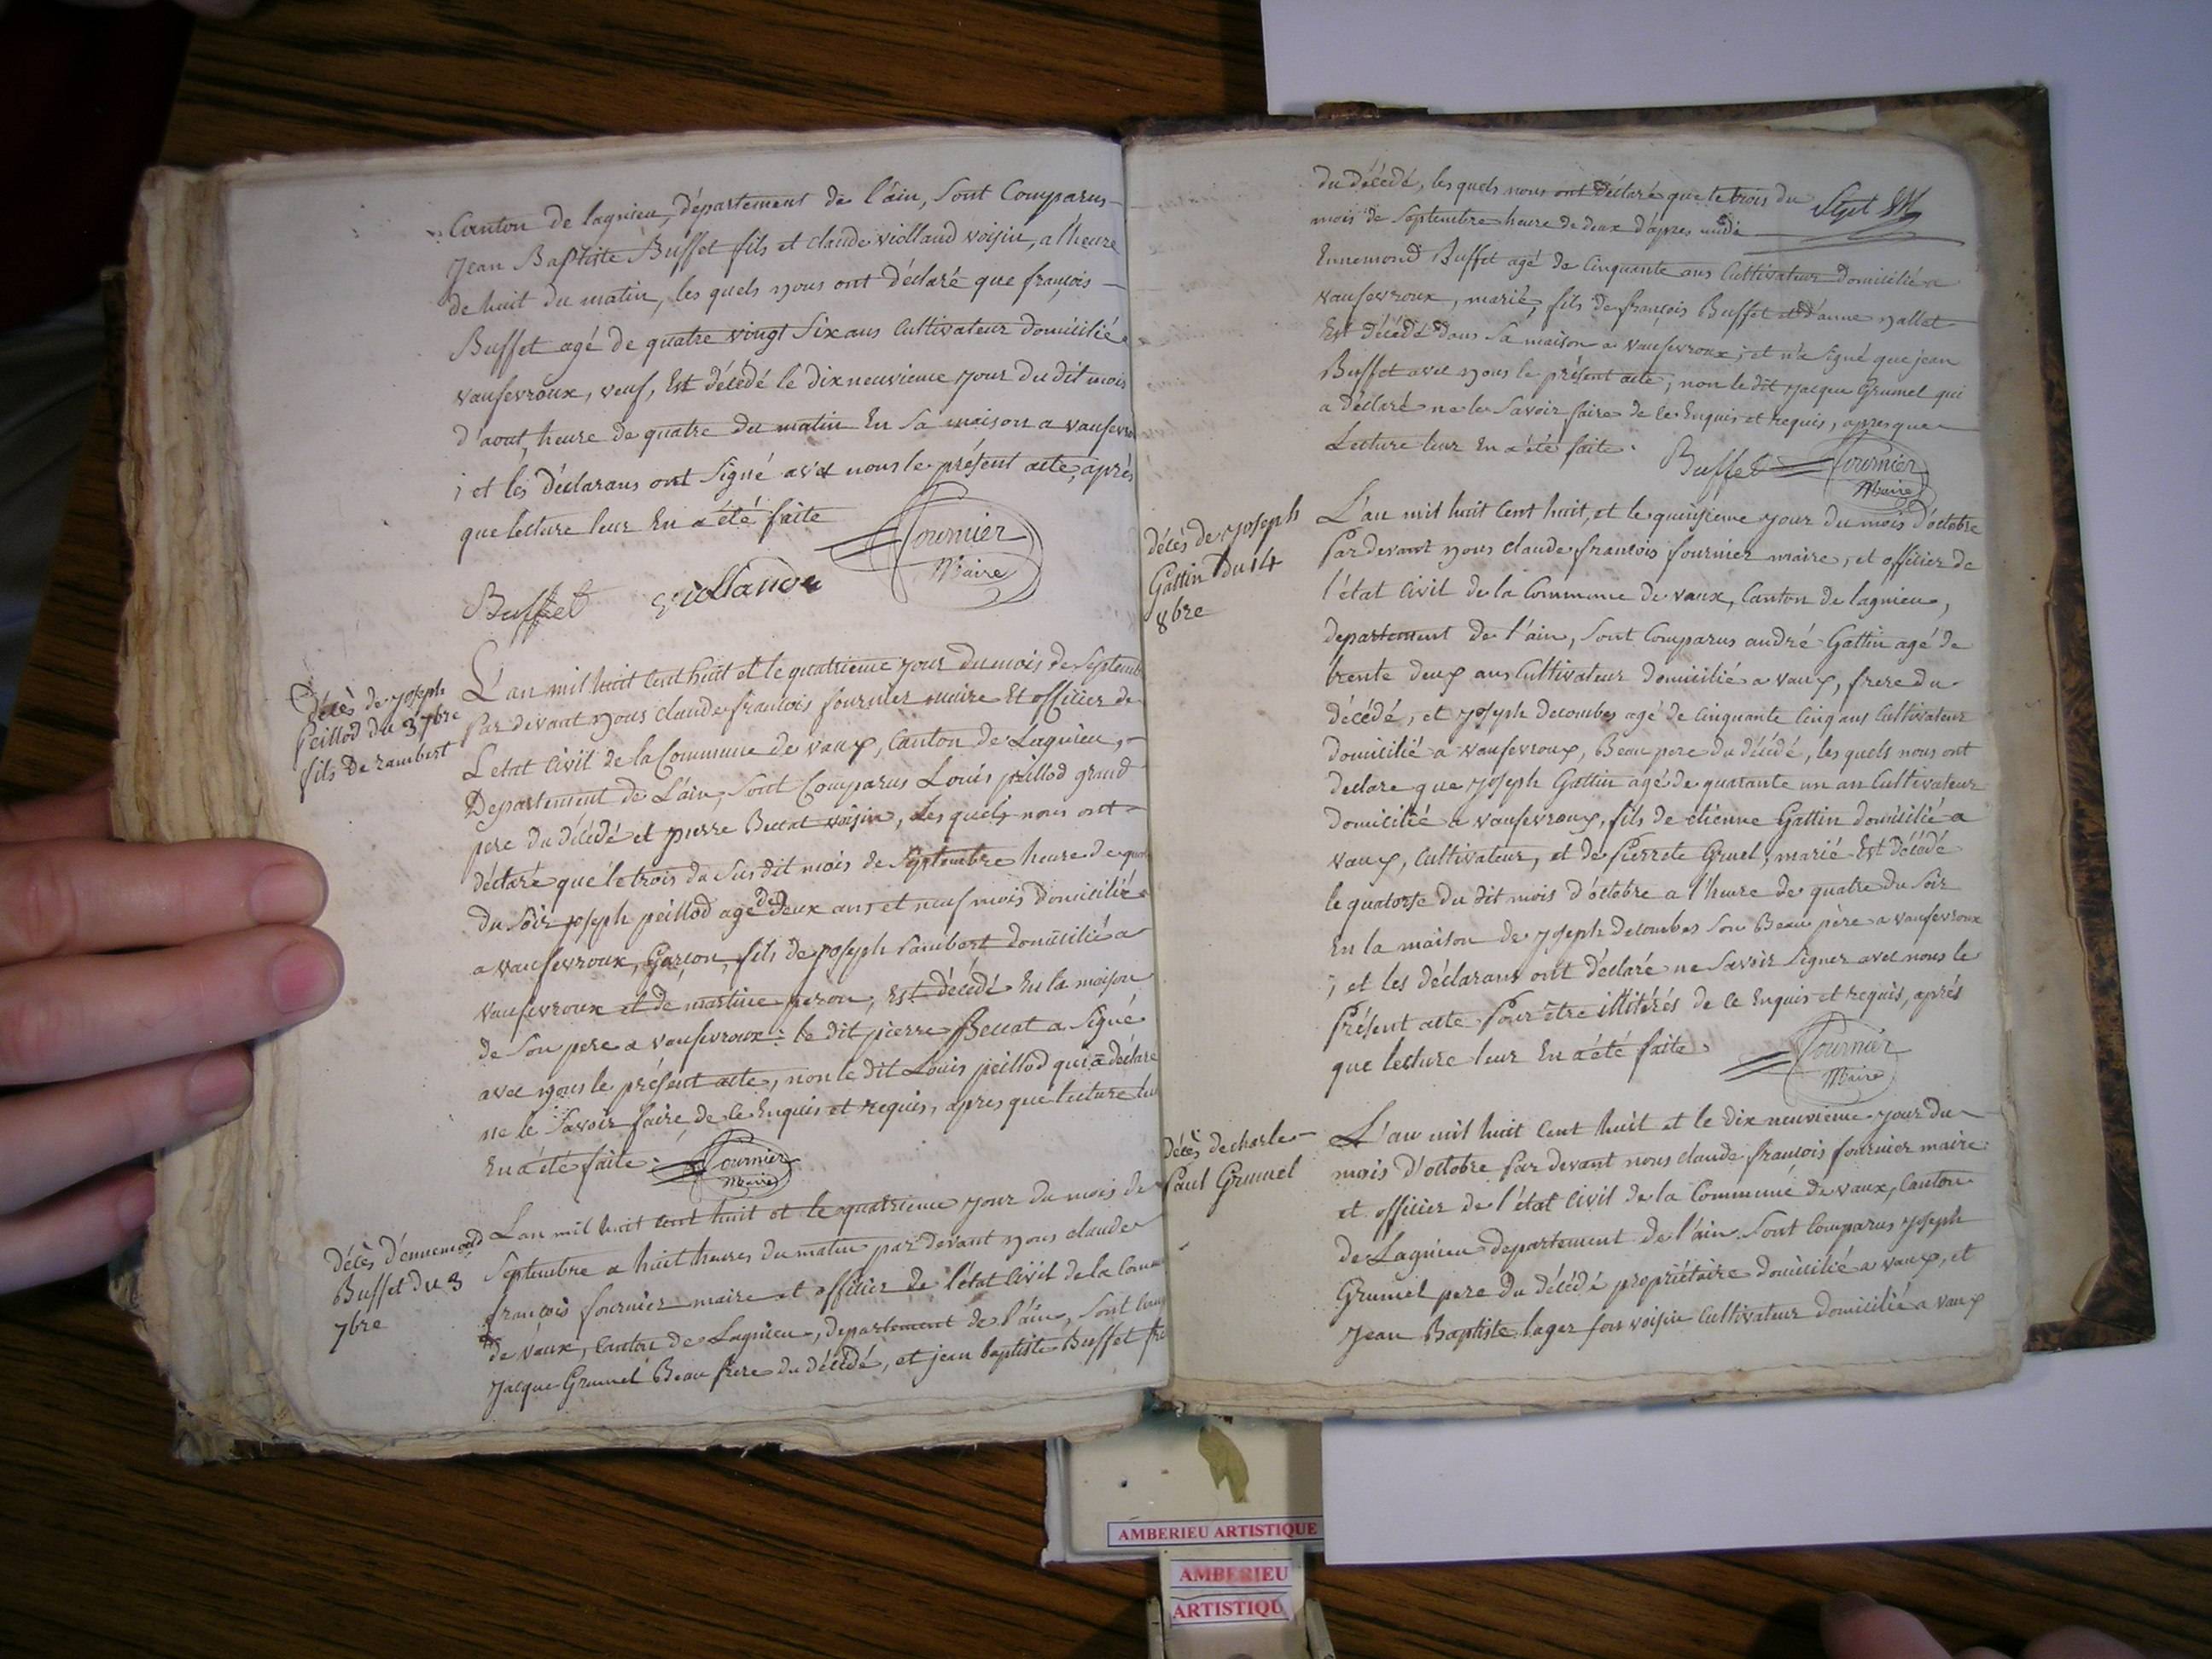 Canton de lagnieu, département de l'ain, sont Comparus
Jean Baptiste Buffet fils et claude viollaud voisin, a l'heure
de huit du matin, les quels nous ont déclaré que françois
Buffet agé de quatre vingt six ans Cultivateur domicilié a
vaufevroux, veuf, Est décédé le dixneuvieme jour du dit mois
d'aout, heure de quatre du matin En sa maison a vaufevro
; et les déclarans ont signé avec nous le présent acte, après
que lecture leur En a été faite
Fournier
Maire
Buffet viollaude
Décès de joseph
Peillod du 3 7bre
fils de rambert
L'an mil huit cent huit et le quatrieme jour du mois de septemb
Par devant nous claude francois fournier maire Et officier de
L'etat Civil de la Commune de vaux, Canton de Lagnieu,
Departement de L'ain, sont Comparus Louis peillod grand
pere du décédé et pierre Beccat voisin, les quels nous ont
déclaré que le trois du susdit mois de septembre heure de qua
du soir joseph peillod agé de deux ans et neuf mois domicilié
a vaufevroux, Garçon, fils de joseph rambert domicilié a
vaufevroux et de martine peron, Est décédé En la maison
de son pere a vaufevroux : le dit pierre Beccat a signé
avec nous le présent acte, non le dit Louis peillod qui a déclaré
ne le savoir faire de ce Enquis et requis, apres que lecture leu
En a été faite. Fournier
Maire
décès d'ennemond
Buffet du 3
7bre
L'an mil huit cent huit et le quatrieme jour du mois de
Septembre a huit heures du matin par devant nous claude
françois fournier maire et officier de l'état Civil de la Com
de vaux, Canton de Lagnieu, departement de l'ain, sont Comp
jacque Grumel Beau frere du décédé, et jean baptiste Buffet fre
du décédé, les quels nous ont déclaré que le trois du
mois de septembre heure de deux d'apres midi
Ennemond Buffet agé de Cinquante ans Cultivateur domicilié a
vaufevroux, marié, fils de françois Buffet et d'anne nallet
Est décédé dans sa maison a vaufevroux ; et n'a signé que jean
Buffet avec nous le présent acte, non le dit jacque Grumel qui
a déclaré ne le savoir faire de ce Enquis et requis, apres que
Lecture leur En a été faite.
Buffet Fournier
Maire
décès de joseph
Gattin du 14
8bre
L'an mil huit Cent huit, et le quinzieme jour du mois d'octobre
Par devant nous claude francois fournier maire, et officier de
l'état Civil de la Commune de vaux, Canton de lagnieu,
departement de l'ain, sont Comparus andré Gattin agé de
trente deux ans Cultivateur domicilié a vaux, frere du
décédé, et joseph decombes agé de Cinquante Cinq ans Cultivateur
domicilié a vaufevroux, Beau pere du décédé, les quels nous ont
declare que joseph Gattin agé de quarante un an Cultivateur
domicilié a vaufevroux, fils de étienne Gattin domicilié a
vaux, Cultivateur, et de Pierrete Gruel, marié Est décédé
le quatorse du dit mois d'octobre a l'heure de quatre du soir
En la maison de joseph decombes son Beau père a vaufevroux
; et les déclarans ont déclaré ne savoir signer avec nous le
Présent acte Pour être illitérés de ce Enquis et requis, aprés
que lecture leur En a été faite.
Fournier
Maire
décès de charle
Paul Grumel
L'an mil huit Cent huit et le dix neuvieme jour du
mois d'octobre Par devant nous claude françois fournier maire
et officier de l'état Civil de la Commune de vaux, Canton
de Lagnieu departement de l'ain sont Comparus joseph
Grumel pere du décédé propriétaire domicilié a vaux, et
jean Baptiste lager son voisin Cultivateur domicilié a vaux
AMBERIEU ARTISTIQUE
AMBERIEU
ARTISTIQU